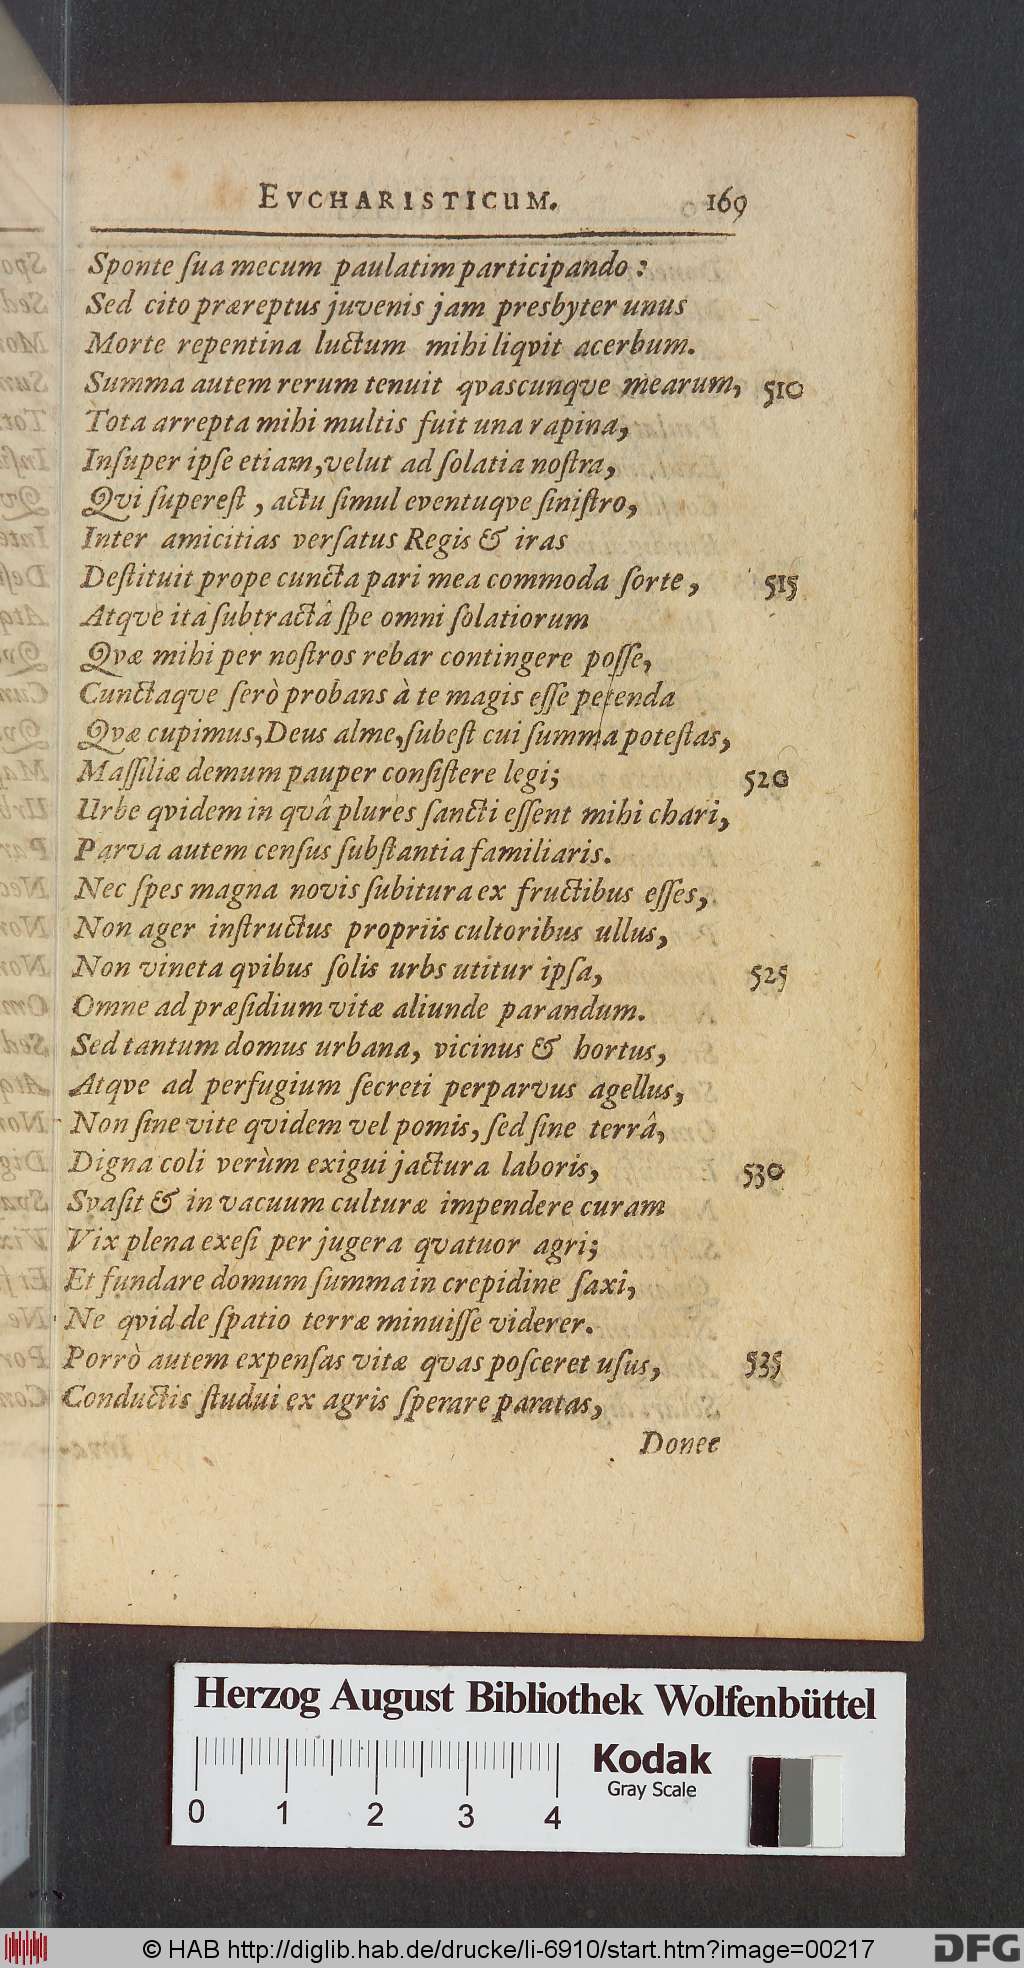 EVCHARISTICUM. 169
Sponte ſua mecum paulatim participando:
Sed cito præreptus juvenis jam presbyter unus
Morte repentina luctum mihi liqvit acerbum.
Summa autem rerum tenuit qvascunqve mearum, 510
Tota arrepta mihi multis fuit una rapina,
Inſuper ipſe etiam, velut ad ſolatia noſtra,
Qvi ſupereſt, actu ſimul eventuqve ſiniſtro,
Inter amicitias verſatus Regis & iras
Deſtituit prope cuncta pari mea commoda ſorte, 515
Atqve ita ſubtractâ ſpe omni ſolatiorum
Qvæ mihi per noſtros rebar contingere poſſe,
Cunctaqve ſerò probans à te magis eſſe petenda
Qvæ cupimus, Deus alme, ſubeſt cui ſumma poteſtas,
Maſſiliæ demum pauper conſiſtere legi; 520
Urbe qvidem in qvâ plures ſancti eſſent mihi chari,
Parva autem cenſus ſubſtantia familiaris.
Nec ſpes magna novis ſubitura ex fructibus eſſes,
Non ager inſtructus propriis cultoribus ullus,
Non vineta qvibus ſolis urbs utitur ipſa, 525
Omne ad præſidium vitæ aliunde parandum.
Sed tantum domus urbana, vicinus & hortus,
Atqve ad perfugium ſecreti perparvus agellus,
Non ſine vite qvidem vel pomis, ſed ſine terrâ,
Digna coli verùm exigui jactura laboris, 530
Svaſit & in vacuum culturæ impendere curam
Vix plena exeſi per jugera qvatuor agri;
Et fundare domum ſumma in crepidine ſaxi,
Ne qvid de ſpatio terræ minuiſſe viderer.
Porrò autem expenſas vitæ qvas poſceret uſus, 535
Conductis ſtudui ex agris ſperare paratas,
Donec
Herzog August Bibliothek Wolfenbüttel
Kodak
Gray Scale
0 1 2 3 4
© HAB http://diglib.hab.de/drucke/li-6910/start.htm?image=00217
DFG